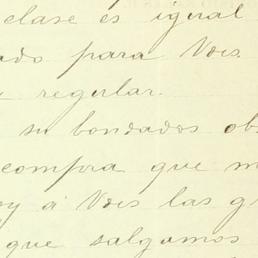 clase es igual
para Vdes.
regular.
su bondados
compra que
á Vdes las
que salgamos